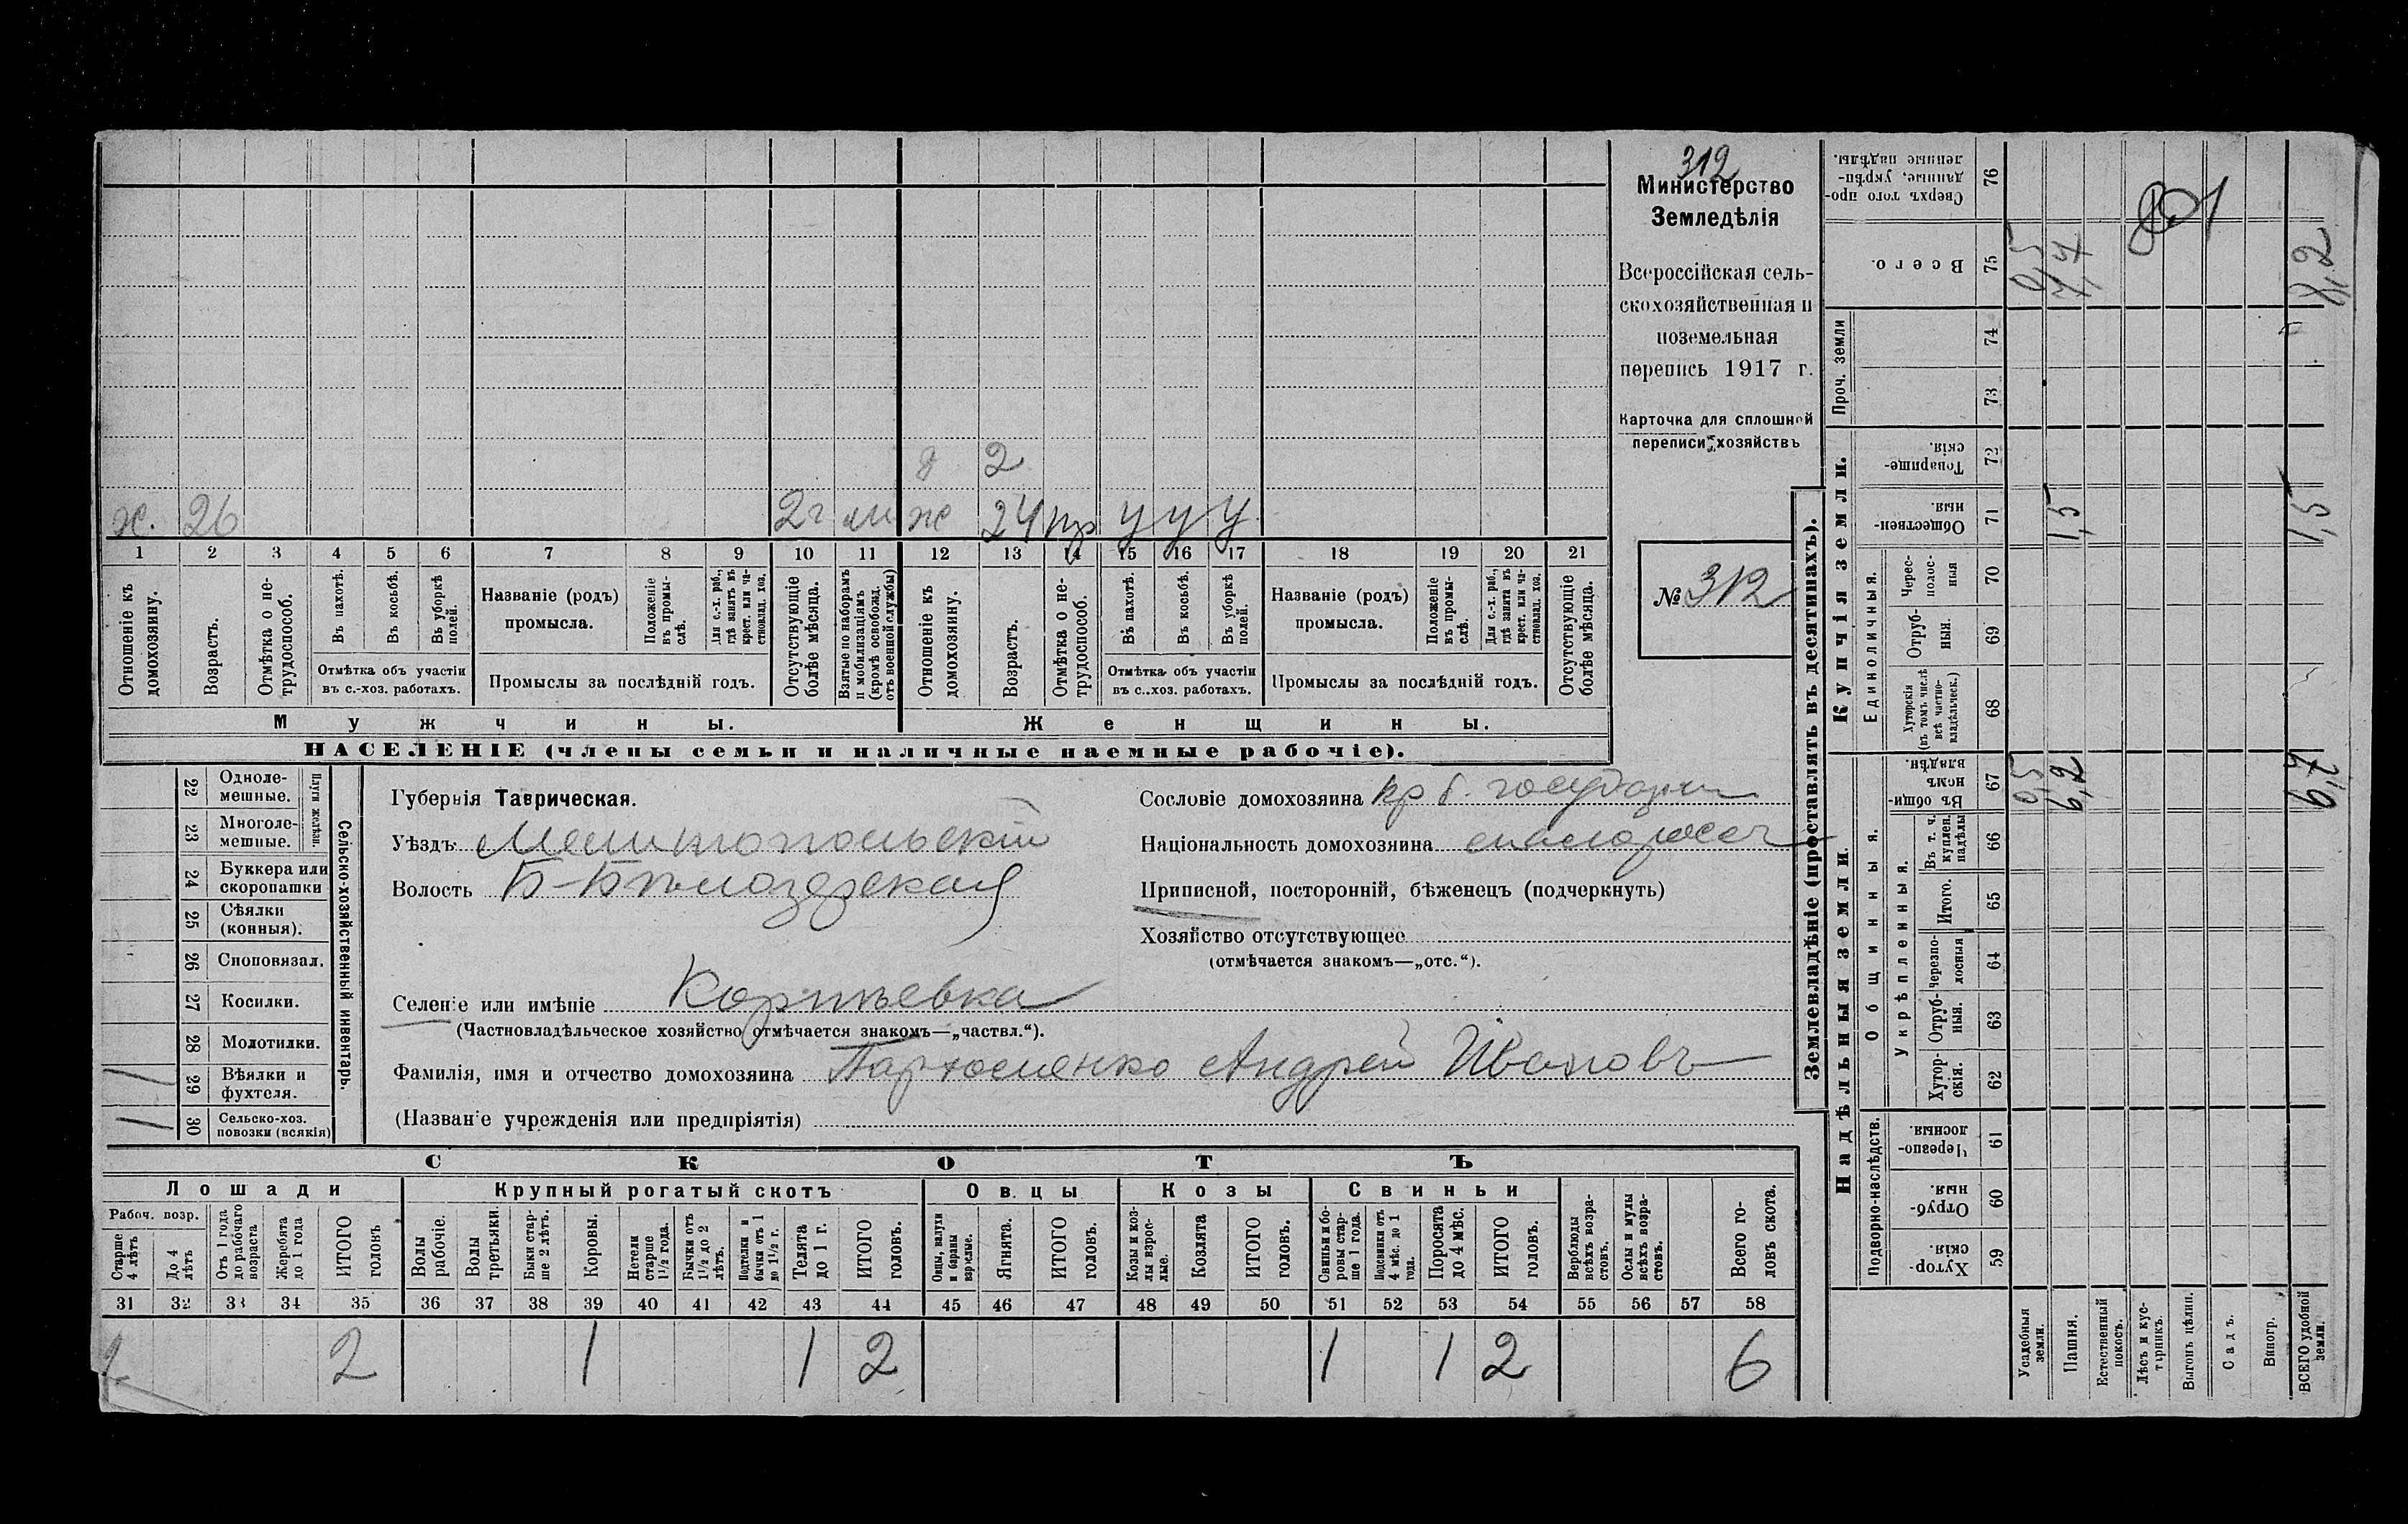 312
Министерство
Земледѣлія
Всероссійская сель-
скохозяйственная и
поземельная
перепись 1917 г.
Карточка для сплошной
переписи хозяйствъ
№ 312
2
х. 26 2г ж 24 пр у у у
1 2 3 4 5 6 7 8 9 10 11 12 13 14 15 16 17 18 19 20 21
Отношеніе къ домохозяину.
Возрастъ.
Отмѣтка о не-трудоспособ.
Въ пахотѣ.
Въ косьбѣ.
Въ уборкѣ полей.
Отмѣтка объ участіи
въ с.-хоз. работахъ.
Названіе (родъ)
промысла.
Положеніе въ промы-слѣ.
Для с.-х. раб., гдѣ занятъ въ крест. или ча-стновлад. хоз.
Промыслы за послѣдній годъ.
Отсутствующіе болѣе мѣсяца.
Взятые по наборамъ и мобилизаціямъ (кромѣ освобожд. отъ военной службы)
Отношеніе къ домохозяину.
Возрастъ.
Отмѣтка о не-трудоспособ.
Въ пахотѣ.
Въ косьбѣ.
Въ уборкѣ полей.
Отмѣтка объ участіи
въ с.-хоз. работахъ.
Названіе (родъ)
промысла.
Положеніе въ промы-слѣ.
Для с.-х. раб., гдѣ занята въ крест. или ча-стновлад. хоз.
Промыслы за послѣдній годъ.
Отсутствующіе болѣе мѣсяца.
Мужчины. Женщины.
НАСЕЛЕНІЕ (члены семьи и наличные наемные рабочіе).
Сельско-хозяйственный инвентарь.
Плуги желѣзн.
22 Одноле-мешные.
23 Многоле-мешные.
24 Буккера или скоропашки
25 Сѣялки (конныя).
26 Сноповязал.
27 Косилки.
28 Молотилки.
29 Вѣялки и фухтеля. 1
30 Сельско-хоз. повозки (всякія) 1
Губернія Таврическая.
Уѣздъ Мелитопольскій
Волость Б-Бѣлозерская
Сословіе домохозяина кр б. государ
Національность домохозяина малоросс
Приписной, посторонній, бѣженецъ (подчеркнуть)
Хозяйство отсутствующее
(отмѣчается знакомъ—„отс.“).
Селеніе или имѣніе Корнѣевка
(Частновладѣльческое хозяйство отмѣчается знакомъ—„частвл.“).
Фамилія, имя и отчество домохозяина Пархоменко Андрей Ивановъ
(Названіе учрежденія или предпріятія)
СКОТЪ
Лошади Крупный рогатый скотъ Овцы Козы Свиньи
Рабоч. возр.
Старше 4 лѣтъ
До 4 лѣтъ
Отъ 1 года до рабочаго возраста
Жеребята до 1 года
ИТОГО головъ
Волы рабочіе.
Волы третьяки.
Быки стар-ше 2 лѣтъ.
Коровы.
Нетели старше 1½ года.
Бычки отъ 1½ до 2 лѣтъ.
Подтелки и бычки отъ 1 до 1½ г.
Телята до 1 г.
ИТОГО головъ.
Овцы, валухи и бараны взрослые.
Ягнята.
ИТОГО головъ.
Козы и коз-лы взрос-лые.
Козлята
ИТОГО головъ.
Свиньи и бо-ровы стар-ше 1 года.
Подсвинки отъ 4 мѣс. до 1 года.
Поросята до 4 мѣс.
ИТОГО головъ.
Верблюды всѣхъ возра-стовъ.
Ослы и мулы всѣхъ возра-стовъ.
Всего го-ловъ скота.
31 32 33 34 35 36 37 38 39 40 41 42 43 44 45 46 47 48 49 50 51 52 53 54 55 56 57 58
2 2 1 1 2 1 1 2 6
Землевладѣніе (проставлять въ десятинахъ).
Надѣльныя земли
Подворно-наслѣдств.
Хутор-скія. 59
Отруб-ныя. 60
Черезпо-лосныя. 61
Общинныя.
Укрѣпленныя.
Хутор-скія. 62
Отруб-ныя. 63
Черезпо-лосныя 64
Итого. 65
Въ т. ч. куплен. надѣлы 66
Въ общин-номъ владѣн. 67
Купчія земли.
Единоличныя.
Хуторскія (въ томъ числѣ всѣ частно-владѣльческ.) 68
Отруб-ныя. 69
Черес-полос-ныя 70
Обществен-ныя. 71
Товарище-скія. 72
Проч. земли
73 74
Всего. 75
Сверхъ того про-данные, укрѣп-ленные надѣлы. 76
Усадебныя земли. 0,5 0,5
Пашня. 6,2 1,5 7,7
Естественный покосъ.
Лѣсъ и кус-тарникъ.
Выгонъ цѣлин.
Садъ.
Виногр.
ВСЕГО удобной земли. 6,7 1,5 8,2